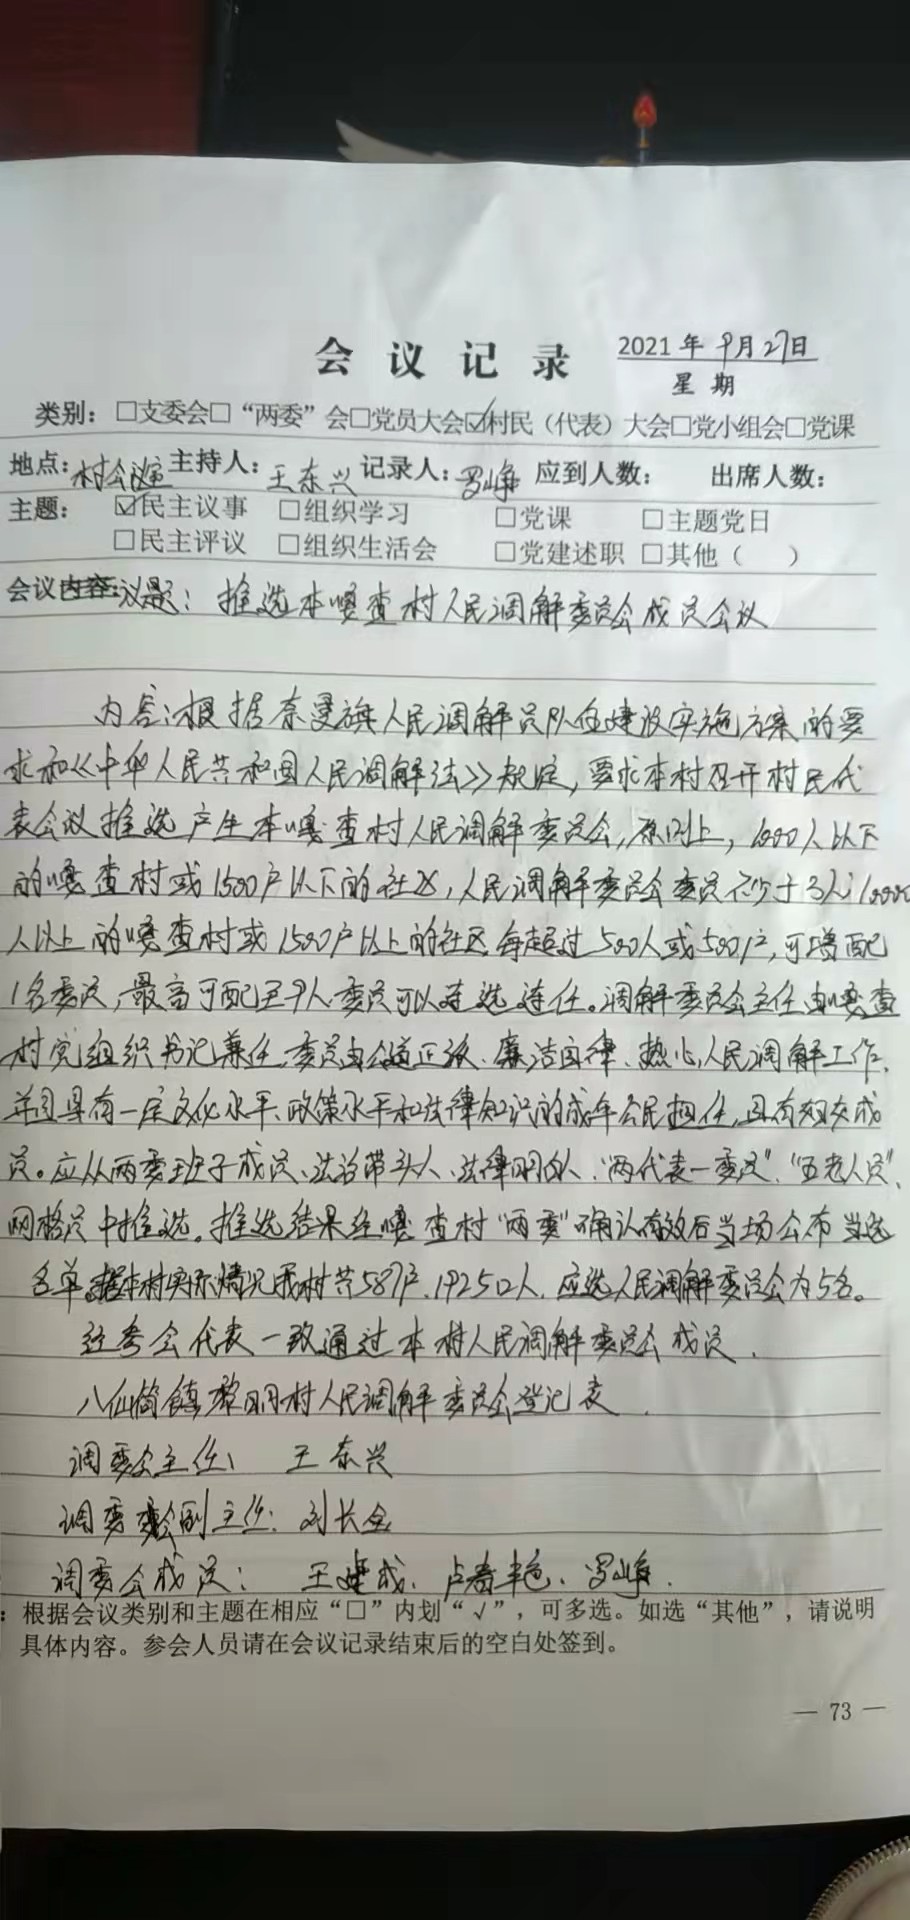 会议记录 2021年9月27日
星期
类别：□支委会□“两委”会□党员大会☑村民（代表）大会□党小组会□党课
地点：村会议室 主持人：王东兴 记录人：罗峥 应到人数： 出席人数：
主题： ☑民主议事 □组织学习 □党课 □主题党日
□民主评议 □组织生活会 □党建述职 □其他（ ）
会议内容：议题：推选本嘎查村人民调解委员会成员会议
内容：根据奈曼旗人民调解员队伍建设实施方案的要
求和《中华人民共和国人民调解法》规定，要求本村召开村民代
表会议推选产生本嘎查村人民调解委员会，原则上，1000人以下
的嘎查村或1500户以下的社区，人民调解委员会委员不少于3人；1000
人以上的嘎查村或1500户以上的社区每超过500人或500户，可增配
1名委员，最高可配至9人。委员可以连选连任。调解委员会主任由嘎查
村党组织书记兼任，委员由公道正派、廉洁自律、热心人民调解工作，
并且具有一定文化水平、政策水平和法律知识的成年公民担任，且有妇女成
员。应从两委班子成员、法治带头人、法律明白人、“两代表一委员”、“五老人员”、
网格员中推选。推选结果经嘎查村“两委”确认有效后当场公布当选
名单。据本村实际情况我村共587户，1925口人，应选人民调解委员会为5名。
经参会代表一致通过本村人民调解委员会成员.
八仙筒镇黎明村人民调解委员会登记表.
调委会主任： 王东兴
调委会副主任：刘长全
调委会成员： 王建成、卢春艳、罗峥.
：根据会议类别和主题在相应“□”内划“√”，可多选。如选“其他”，请说明
具体内容。参会人员请在会议记录结束后的空白处签到。
— 73 —